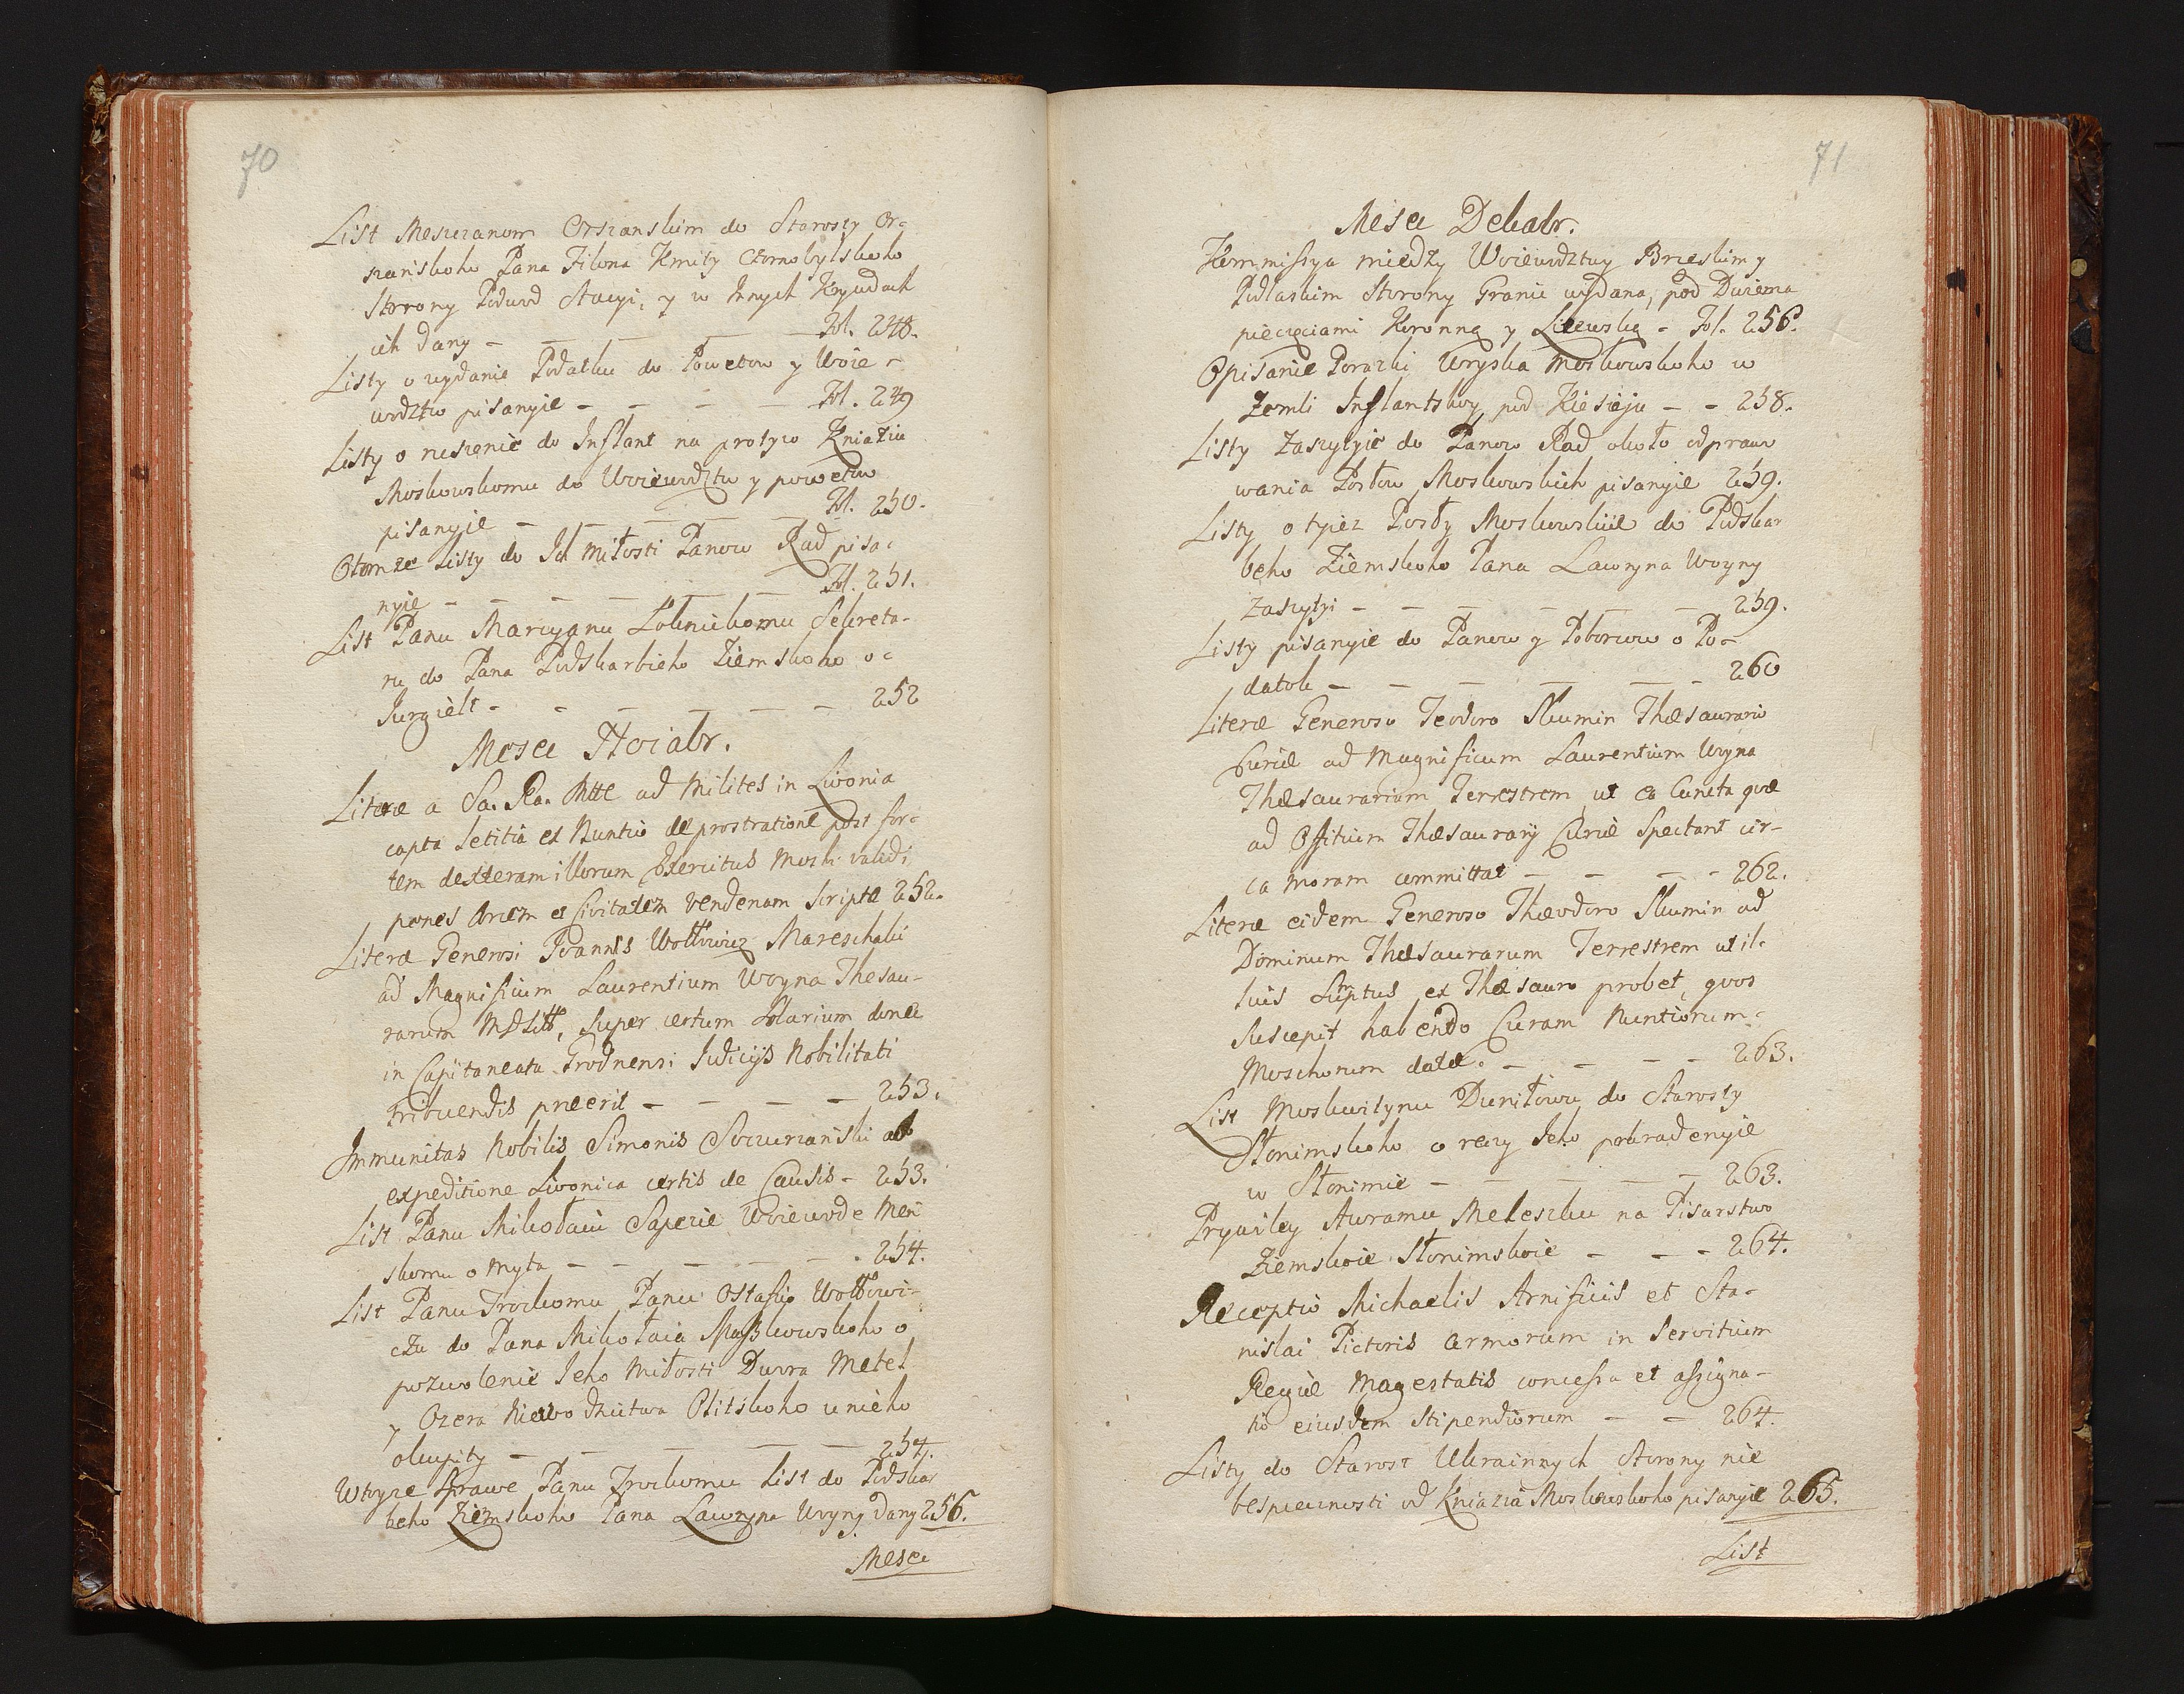 70
List Meszczanom Orszanskim do Starosty Or-
szanskoho Pana Filona Kmity Czornobylskoho
Storony Podwod Stacyi, y w Innych Krywdach
ich dany - Fol. 248.
Listy o wydanie Podatku do Powetow y Woie-
wodztw pisanyie - - - - Fol. 249
Listy o ruszenie do Inflant na protyw Kniazia
Moskowskomu do Woiewodztw y powetow
pisanyie - - - - - Fol. 250.
Otomze Listy do Ich Miłosti Panow Rad pisa-
nyie - - - - - Fol. 251.
List Panu Marcyanu Sekreta-
ru do Pana Podskarbieho Ziemskoho o-
Jurgielt - - - - - - 252
Mesca Noiabr.
Literæ a Sa. Ra. Mtte ad Milites in Livonia
capta letitia ex Nuntio de prostratione post for-
tem dexteram illorum Exercitus Moshi validi
penes Arcem et Civitatem Vendenam Scriptæ 252.
Literæ Generosi Ioannis Wołłowicz Mareschalci
ad Magnificum Laurentium Woyna Thesau-
rarium MDLitt, super certum Solarium donec
in Capitaneatu Grodnensi Iudicijs Nobilitati
tribuendis preerit - - - - 253.
Immunitas Nobilis Simonis ab
expeditione Livonica certis de Causis - 253.
List Panu Mikołaiu Sapezie Woiewode Men
skomu o Myta - - - - - - 254.
List Panu Trockomu Panu Ostafiju Wołłowi-
czu do Pana Mikołaia o
pozwolenie Jeho Miłosti Dwora Metel
y Ozera Olitskoho u nieho
okupity - - - - - 254.
Wtoyze Sprawe Panu Trockomu List do Podskar
beho Ziemskoho Pana Lawryna Woyny dany 256.
Mesca
71
Mesca Dekabr.
Kommissya miedzy Woiewodztwy Brzeskim y
Podlaskim Storony Granic wydana, pod Dwiema
pieczęciami Koronną y Litewską - Fol. 256.
Opisanie Porazki Woyska Moskowskoho w
Zemli Inflantskoy pod Kiesieju - - 258.
Listy Zaszytyie do Panow Rad około odpraw
wania Posłow Moskowskich pisanyie 259.
Listy o tyiez Posły Moskowskiie do Podskar
beho Ziemskoho Pana Lawryna Woyny
zaszytyi - - - - - - 259.
Listy pisanyie do Panow y Poborcow o Po-
datok - - - - - - 260
Literæ Generoso Teodoro Skumin Thæsaurario
Curiæ ad Magnificum Laurentium Woyna
Thæsaurarium Terrestrem ut ea Cuncta quæ
ad Offitium Thæsaurarij Curiæ Spectant cir-
ca moram committat - - - - 262.
Literæ eidem Generoso Thæodoro Skumin ad
Dominum Thæsaurarum Terrestrem ut il-
lius Sumptus ex Thæsauro probet, quos
Suscepit habendo Curam Nuntiorum
Moschorum datæ. - - - - 263.
List Moskwitynu Duniłowu do Starosty
Słonimskoho o reczy Jeho pokradenyie
w Słonimie - - - - - 263.
Prywiley Awramu Meleszku na Pisarstwo
Ziemskoie Słonimskoie - - - 264.
Receptio Michaelis Arnificis et Sta-
nislai Pictoris armorum in Servitium
Regiæ Magestatis concessa et assigna-
tio eiusdem Stipendiorum - - 264.
Listy do Starost Ukrainnych Storony nie
bespiecznosti od Kniazia Moskowskoho pisanyie 265.
List